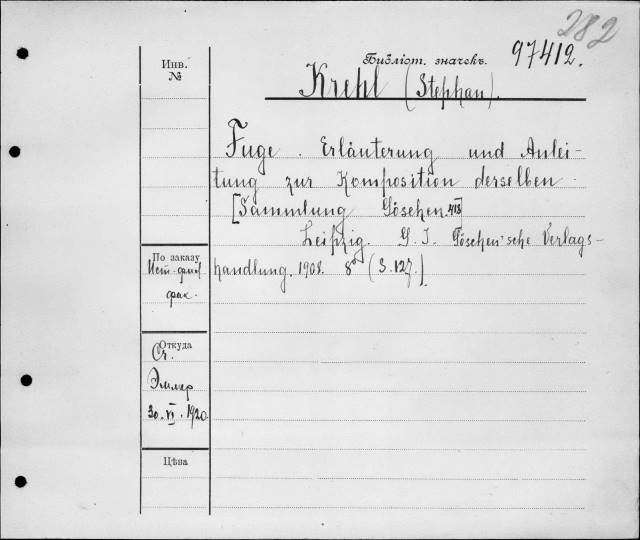 282
Инв.
№
Библіот. значекъ. 97412.
Krehl (Stephan).
Fuge. Erläuterung und Anlei-
tung zur Komposition derselben.
[Sammlung Göschen. 418]
Leipzig. G. J. Göschen'sche Verlags-
handlung. 1908. 8° (S. 127.]
По заказу
Ист-фил
фак.
Откуда
Эйлер
30.VI.1920.
Цѣна